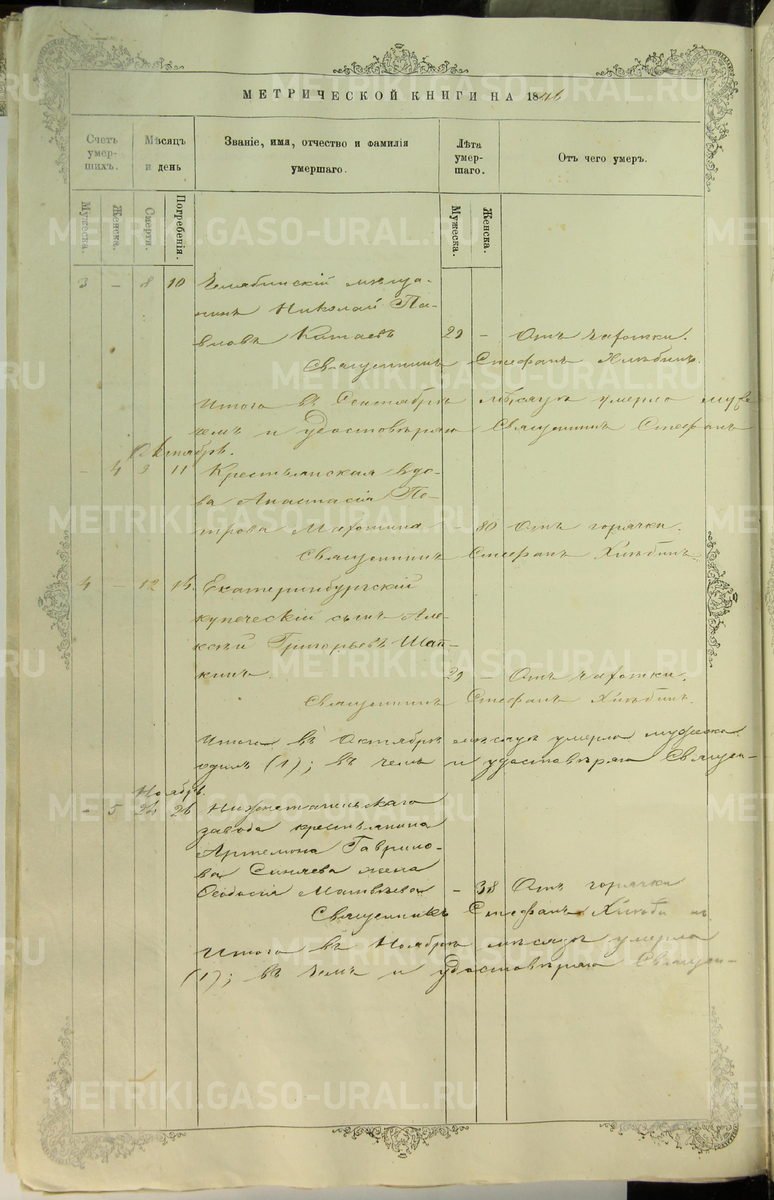 МЕТРИЧЕСКОЙ КНИГИ НА 1846
Счетъ умер-шихъ.
Мѣсяцъ и день
Званіе, имя, отчество и фамилія умершаго.
Лѣта умер-шаго.
Отъ чего умеръ.
Мужеска.
Женска.
Смерти.
Погребенія.
Мужеска.
Женска.
3 – 8 10 Челябинскій мѣща-
нинъ Николай Па-
вловъ Катаевъ 29 – Отъ чахотки.
Священникъ Стефанъ Хлѣбинъ.
Итого въ Сентябрѣ мѣсяцѣ умерло
чемъ и удостовѣряю Священникъ Стефанъ
Октябрь.
– 4 9 11 Крестьянская вдо-
ва Анастасія Пе-
трова – 80 Отъ горячки.
Священникъ Стефанъ Хлѣбинъ.
4 – 12 Екатеринбургскій
купеческій сынъ Але-
ксѣй Григорьевъ Шап-
кинъ. 29 – Отъ чахотки.
Священникъ Стефанъ Хлѣбинъ.
Итого въ Октябрѣ мѣсяцѣ умерло мужеска
одинъ (1); въ чемъ и удостовѣряю Священ-
Ноябрь.
– 5 24 26 Нижнетагильскаго
завода крестьянина
Артемона Гаврило-
ва Синяева жена
Ѳеодосія Матвѣева – 38 Отъ горячки
Священникъ Стефанъ Хлѣбинъ
Итого въ Ноябрѣ мѣсяцѣ умерла
(1); въ чемъ и удостовѣряю Священ-
METRIKI.GASO-URAL.RU